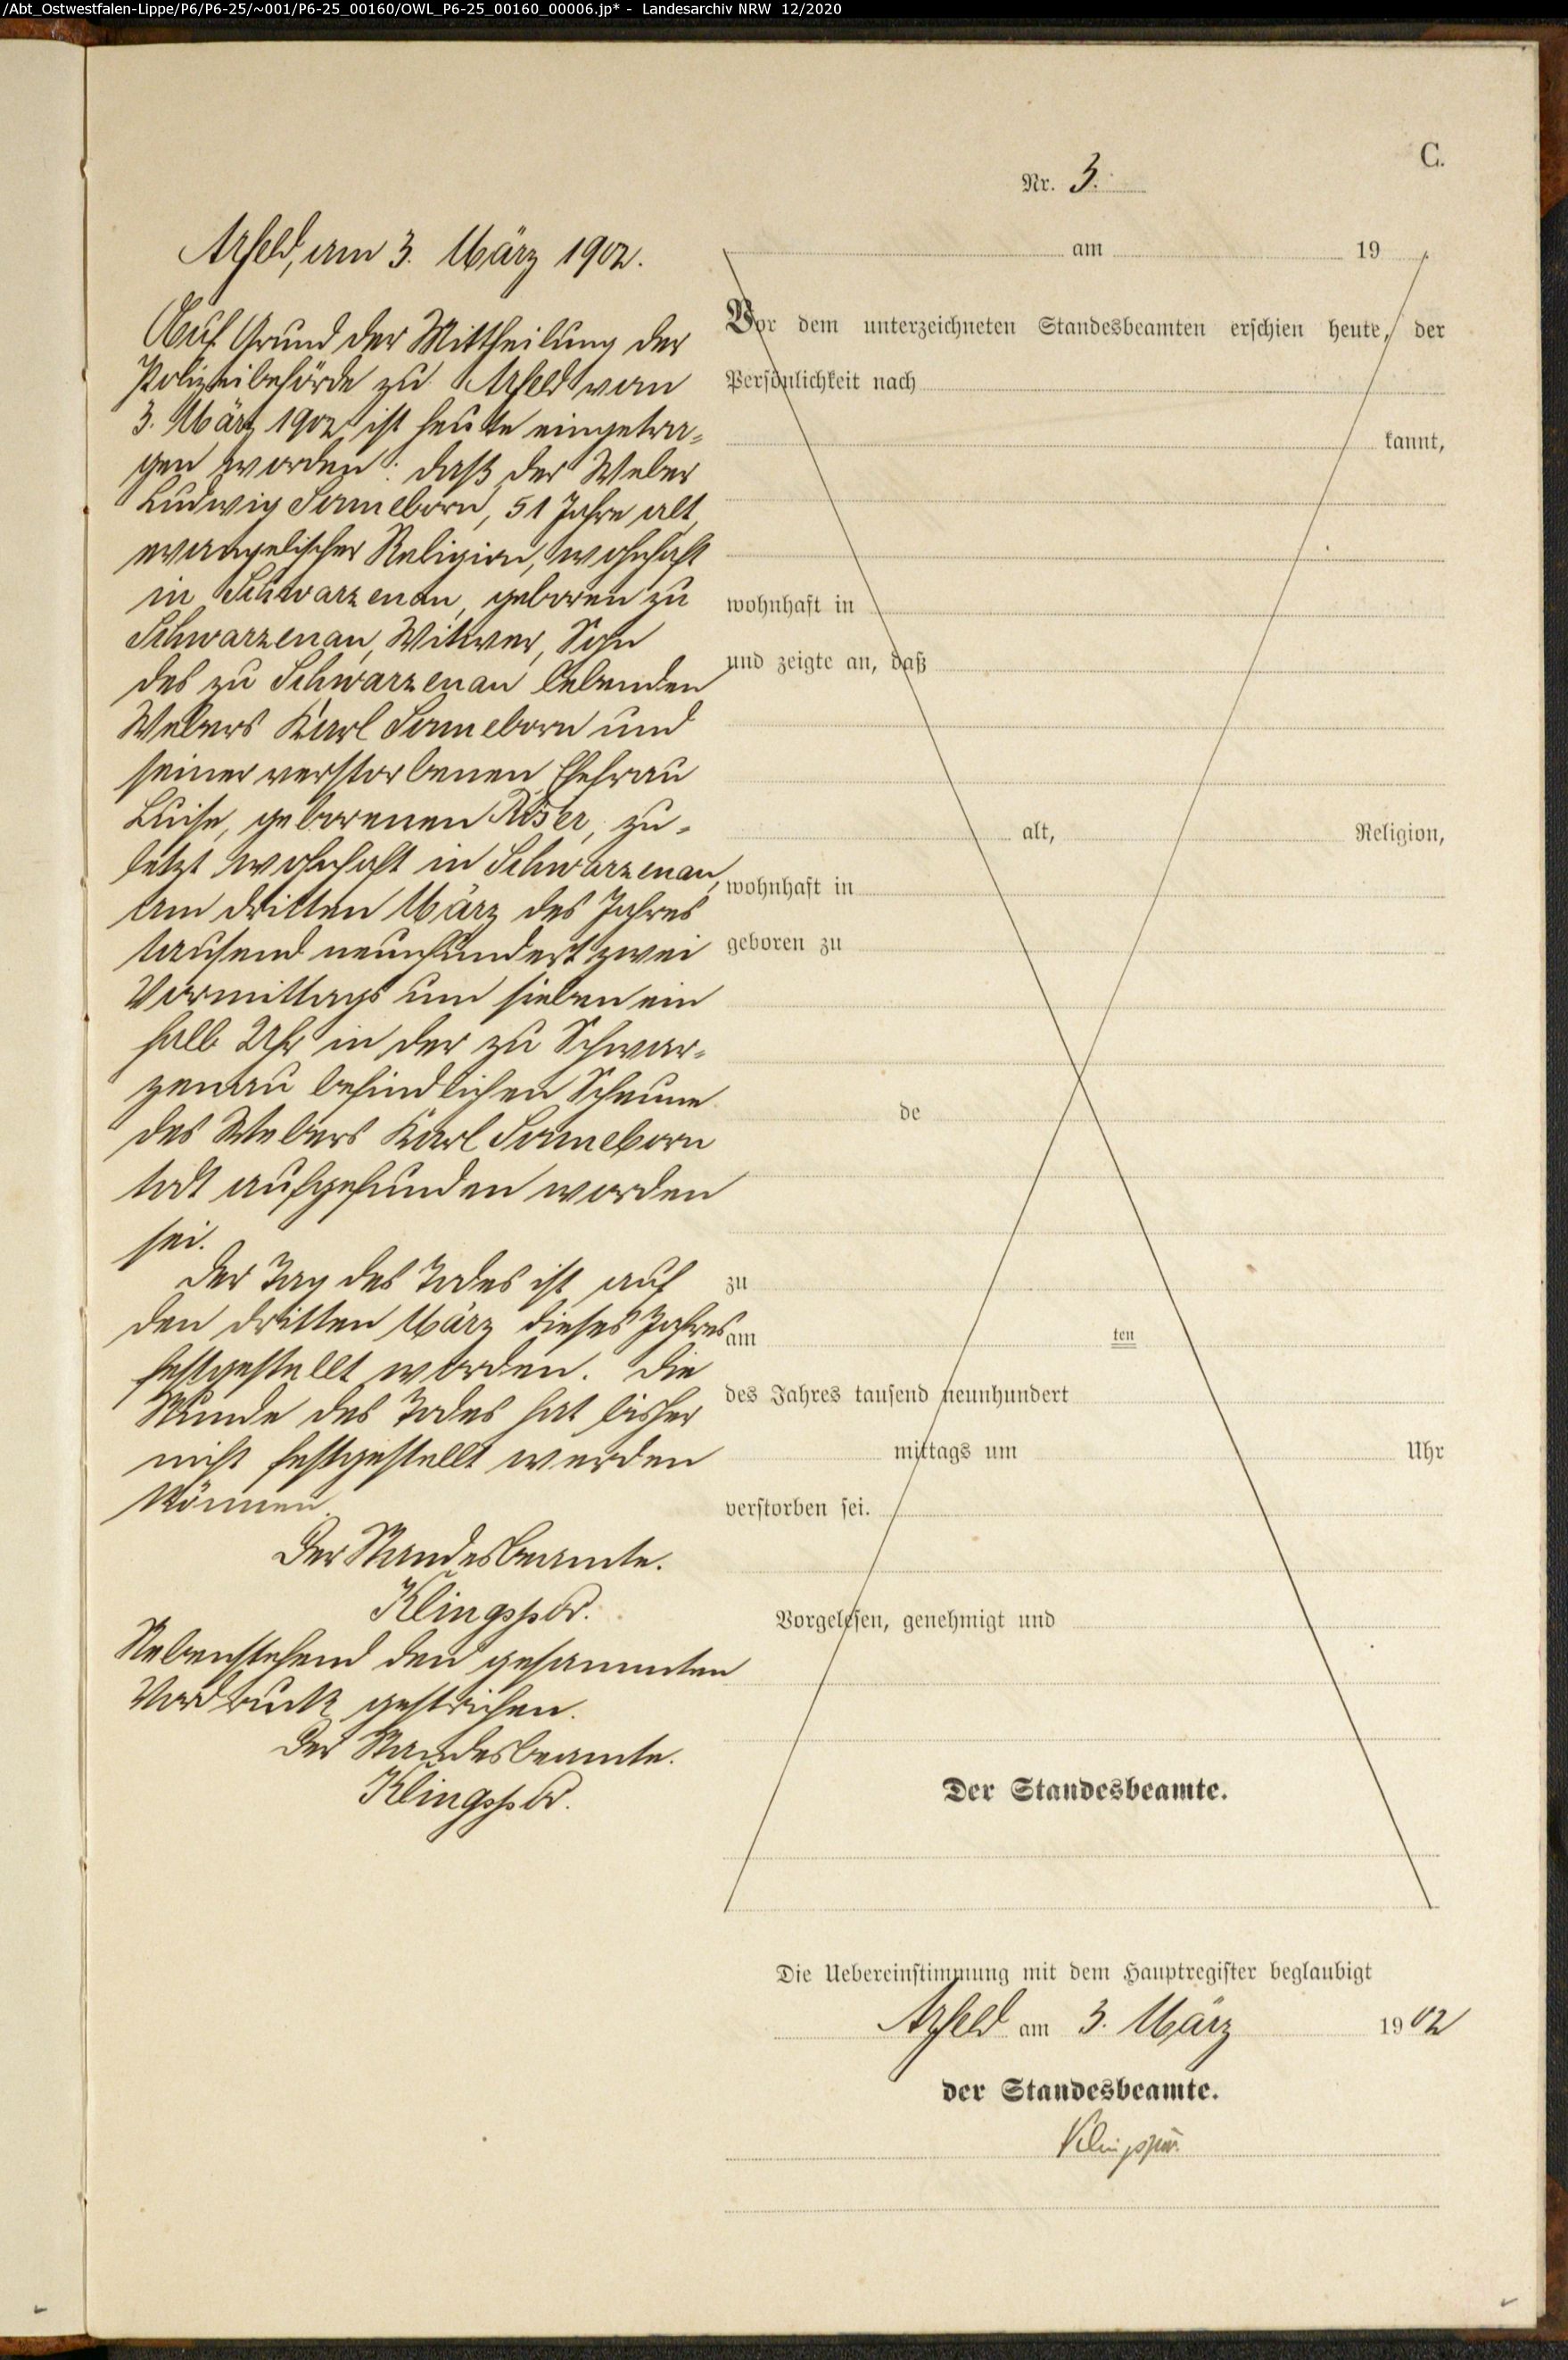 /Abt_Ostwestfalen-Lippe/P6/P6-25/~001/P6-25_00160/OWL_P6-25_00160_00006.jp* - Landesarchiv NRW 12/2020
C.
Nr. 3.
Arfeld, am 3. März 1902.
Auf Grund der Mittheilung der
Polizeibehörde zu Arfeld vom
3. März 1902 ist heute eingetra-
gen worden: daß der Weber
Ludwig Sonneborn, 51 Jahre alt,
evangelischer Religion, wohnhaft
in Schwarzenau, geboren zu
Schwarzenau, Witwer, Sohn
des zu Schwarzenau lebenden
Webers Karl Sonneborn und
seiner verstorbenen Ehefrau
Luise, geborenen Röser, zu-
letzt wohnhaft in Schwarzenau,
am dritten März des Jahres
tausend neunhundert zwei
Vormittags um sieben ein
halb Uhr in der zu Schwar-
zenau befindlichen Scheune
des Webers Karl Sonneborn
todt aufgefunden worden
sei.
Der Tag des Todes ist auf
den dritten März dieses Jahres
festgestellt worden. Die
Stunde des Todes hat bisher
nicht festgestellt werden
können.
Der Standesbeamte.
Klingspor.
Nebenstehend den gesammten
Vordruck gestrichen.
Der Standesbeamte.
Klingspor.
am 19
Vor dem unterzeichneten Standesbeamten erschien heute, der
Persönlichkeit nach
kannt,
wohnhaft in
und zeigte an, daß
alt, Religion,
wohnhaft in
geboren zu
de
zu
am ten
des Jahres tausend neunhundert
mittags um Uhr
verstorben sei.
Vorgelesen, genehmigt und
Der Standesbeamte.
Die Uebereinstimmung mit dem Hauptregister beglaubigt
Arfeld am 3. März 1902
der Standesbeamte.
Klingspor.